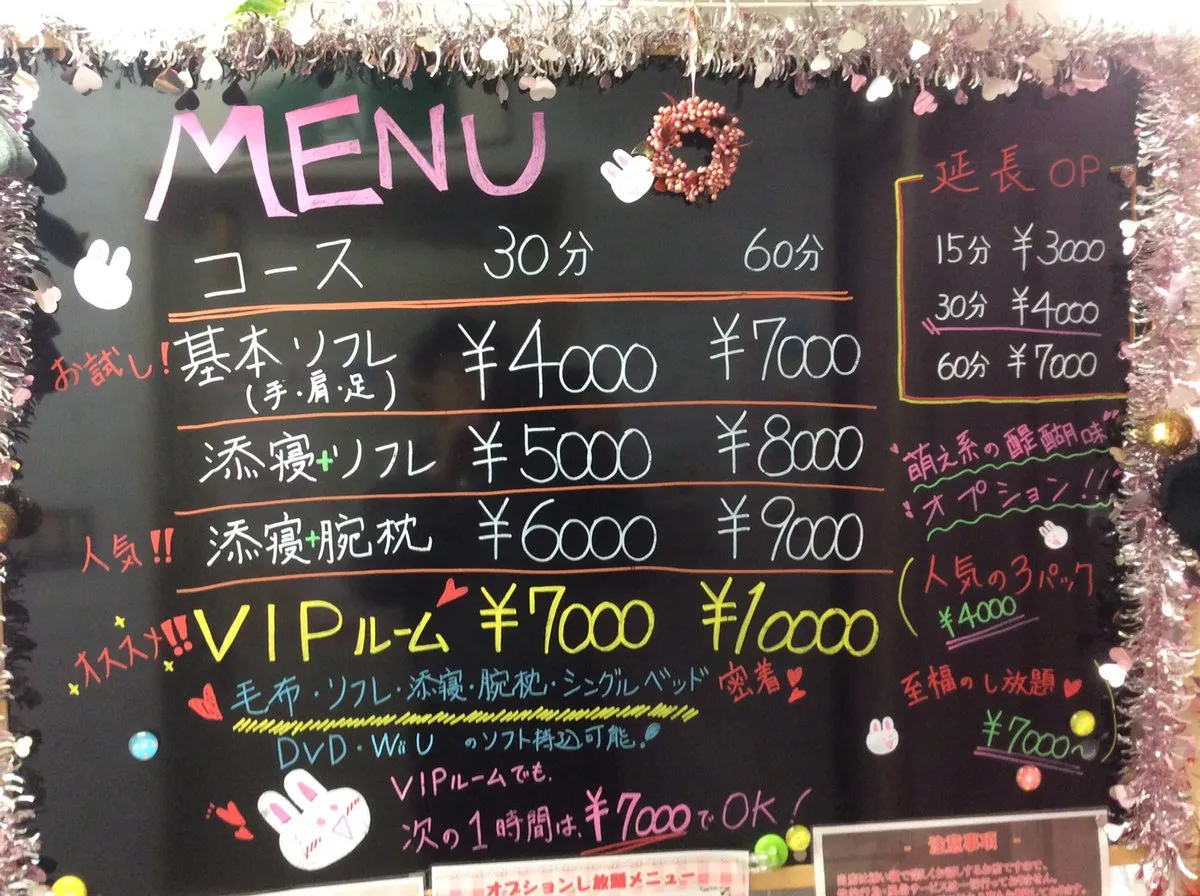 MENU
コース 30分 60分
お試し! 基本ソフレ ¥4000 ¥7000
(手・肩・足)
添寝+ソフレ ¥5000 ¥8000
人気!! 添寝+腕枕 ¥6000 ¥9000
オススメ!! VIPルーム ¥7000 ¥10000
毛布・ソフレ・添寝・腕枕・シングルベッド 密着!
DVD・Wii U のソフト持込可能!
VIPルームでも、
次の1時間は、¥7000でOK!
延長 OP
15分 ¥3000
30分 ¥4000
60分 ¥7000
萌え系の醍醐味
オプション!!
人気の3パック
¥4000
至福のし放題
¥7000~
オプションし放題メニュー
- 注意事項 -